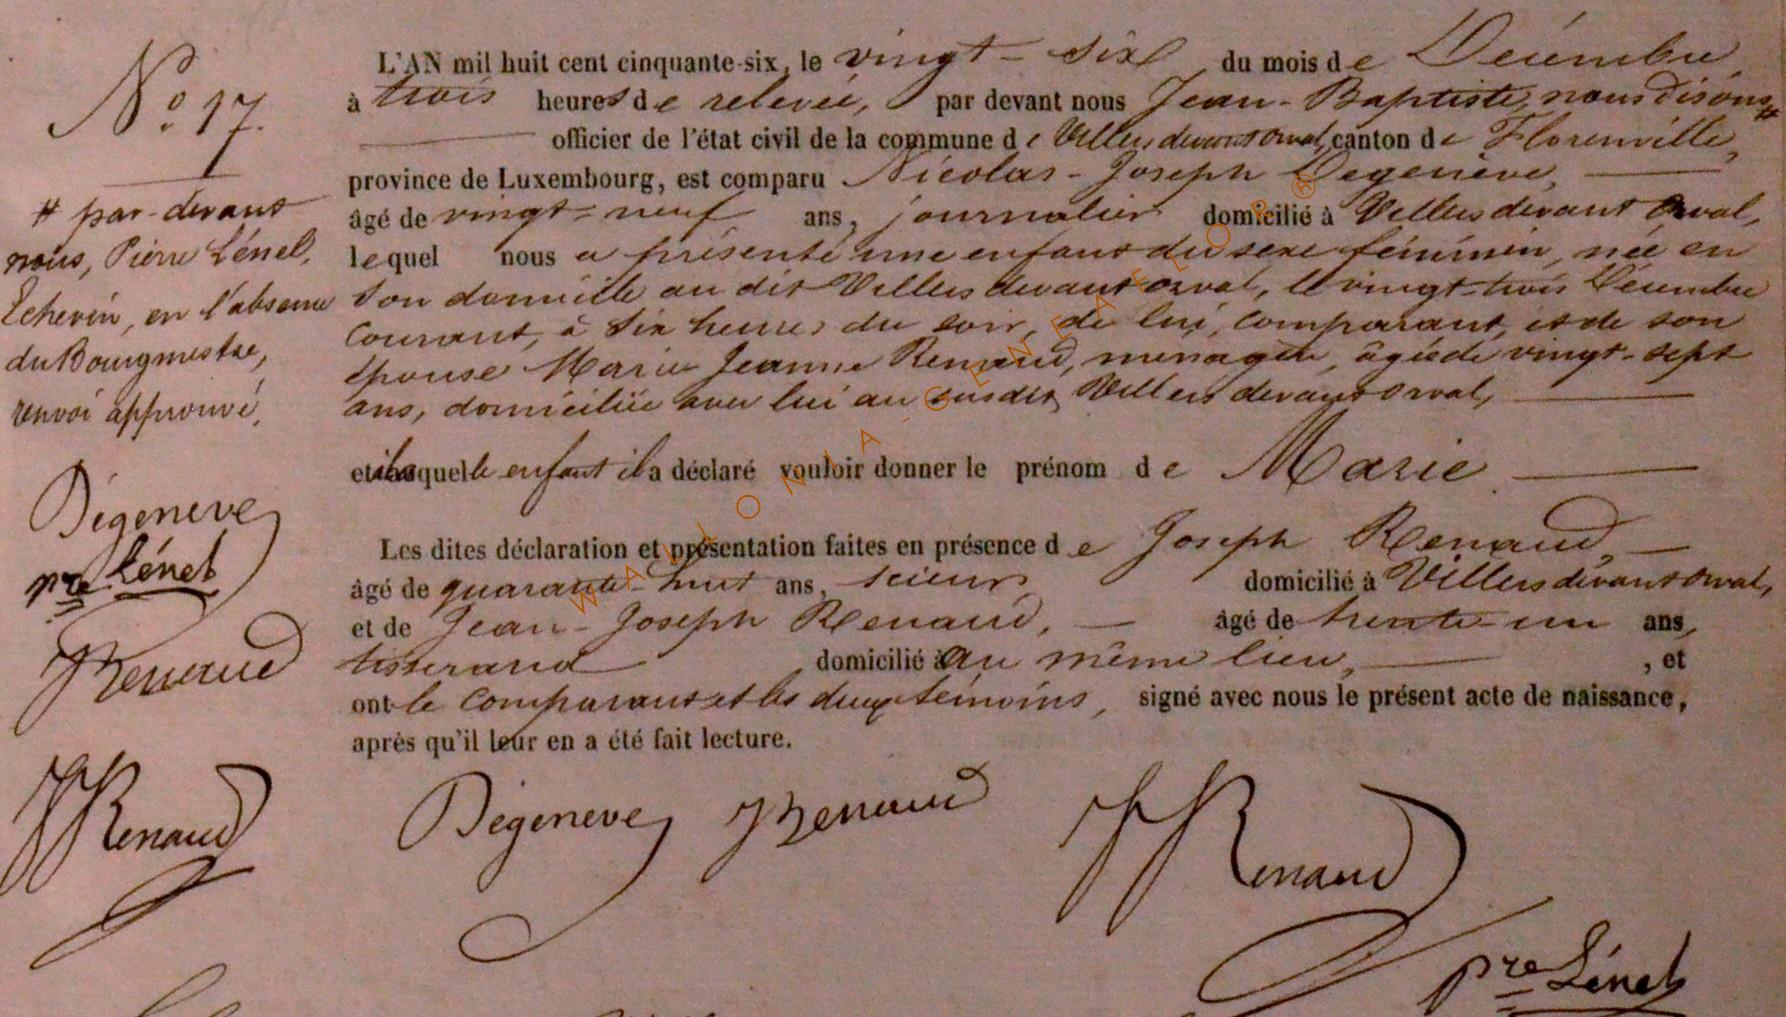 N° 17.
# par-devant
nous, Pierre Lénel,
Echevin, en l'absence
du Bourgmestre,
renvoi approuvé,
Dégeneve
pre Lénel
JRenaud
JJRenaud
L'AN mil huit cent cinquante-six, le vingt-six du mois de Décembre
à trois heures de relevée, par devant nous Jean-Baptiste, nous disons #
officier de l'état civil de la commune de Villers devant Orval, canton de Florenville,
province de Luxembourg, est comparu Nicolas-Joseph Degenève,
âgé de vingt-neuf ans, journalier domicilié à Villers devant Orval,
lequel nous a présenté une enfant du sexe féminin, née en
son domicile au dit Villers devant orval, le vingt-trois Décembre
courant, à six heures du soir, de lui, comparant, et de son
épouse Marie Jeanne Renaud, ménagère, âgée de vingt-sept
ans, domiciliée avec lui au susdit Villers devant Orval,
et laquelle enfant il a déclaré vouloir donner le prénom de Marie
Les dites déclaration et présentation faites en présence de Joseph Renaud,
âgé de quarante-huit ans, scieur domicilié à Villers devant Orval,
et de Jean-Joseph Renaud, âgé de trente-un ans,
tisserand domicilié au même lieu, , et
ont le comparant et les deux témoins, signé avec nous le présent acte de naissance,
après qu'il leur en a été fait lecture.
Dégeneve JRenaud JJRenaud
pre Lénel
WALLONIA-GENEAFLOR®